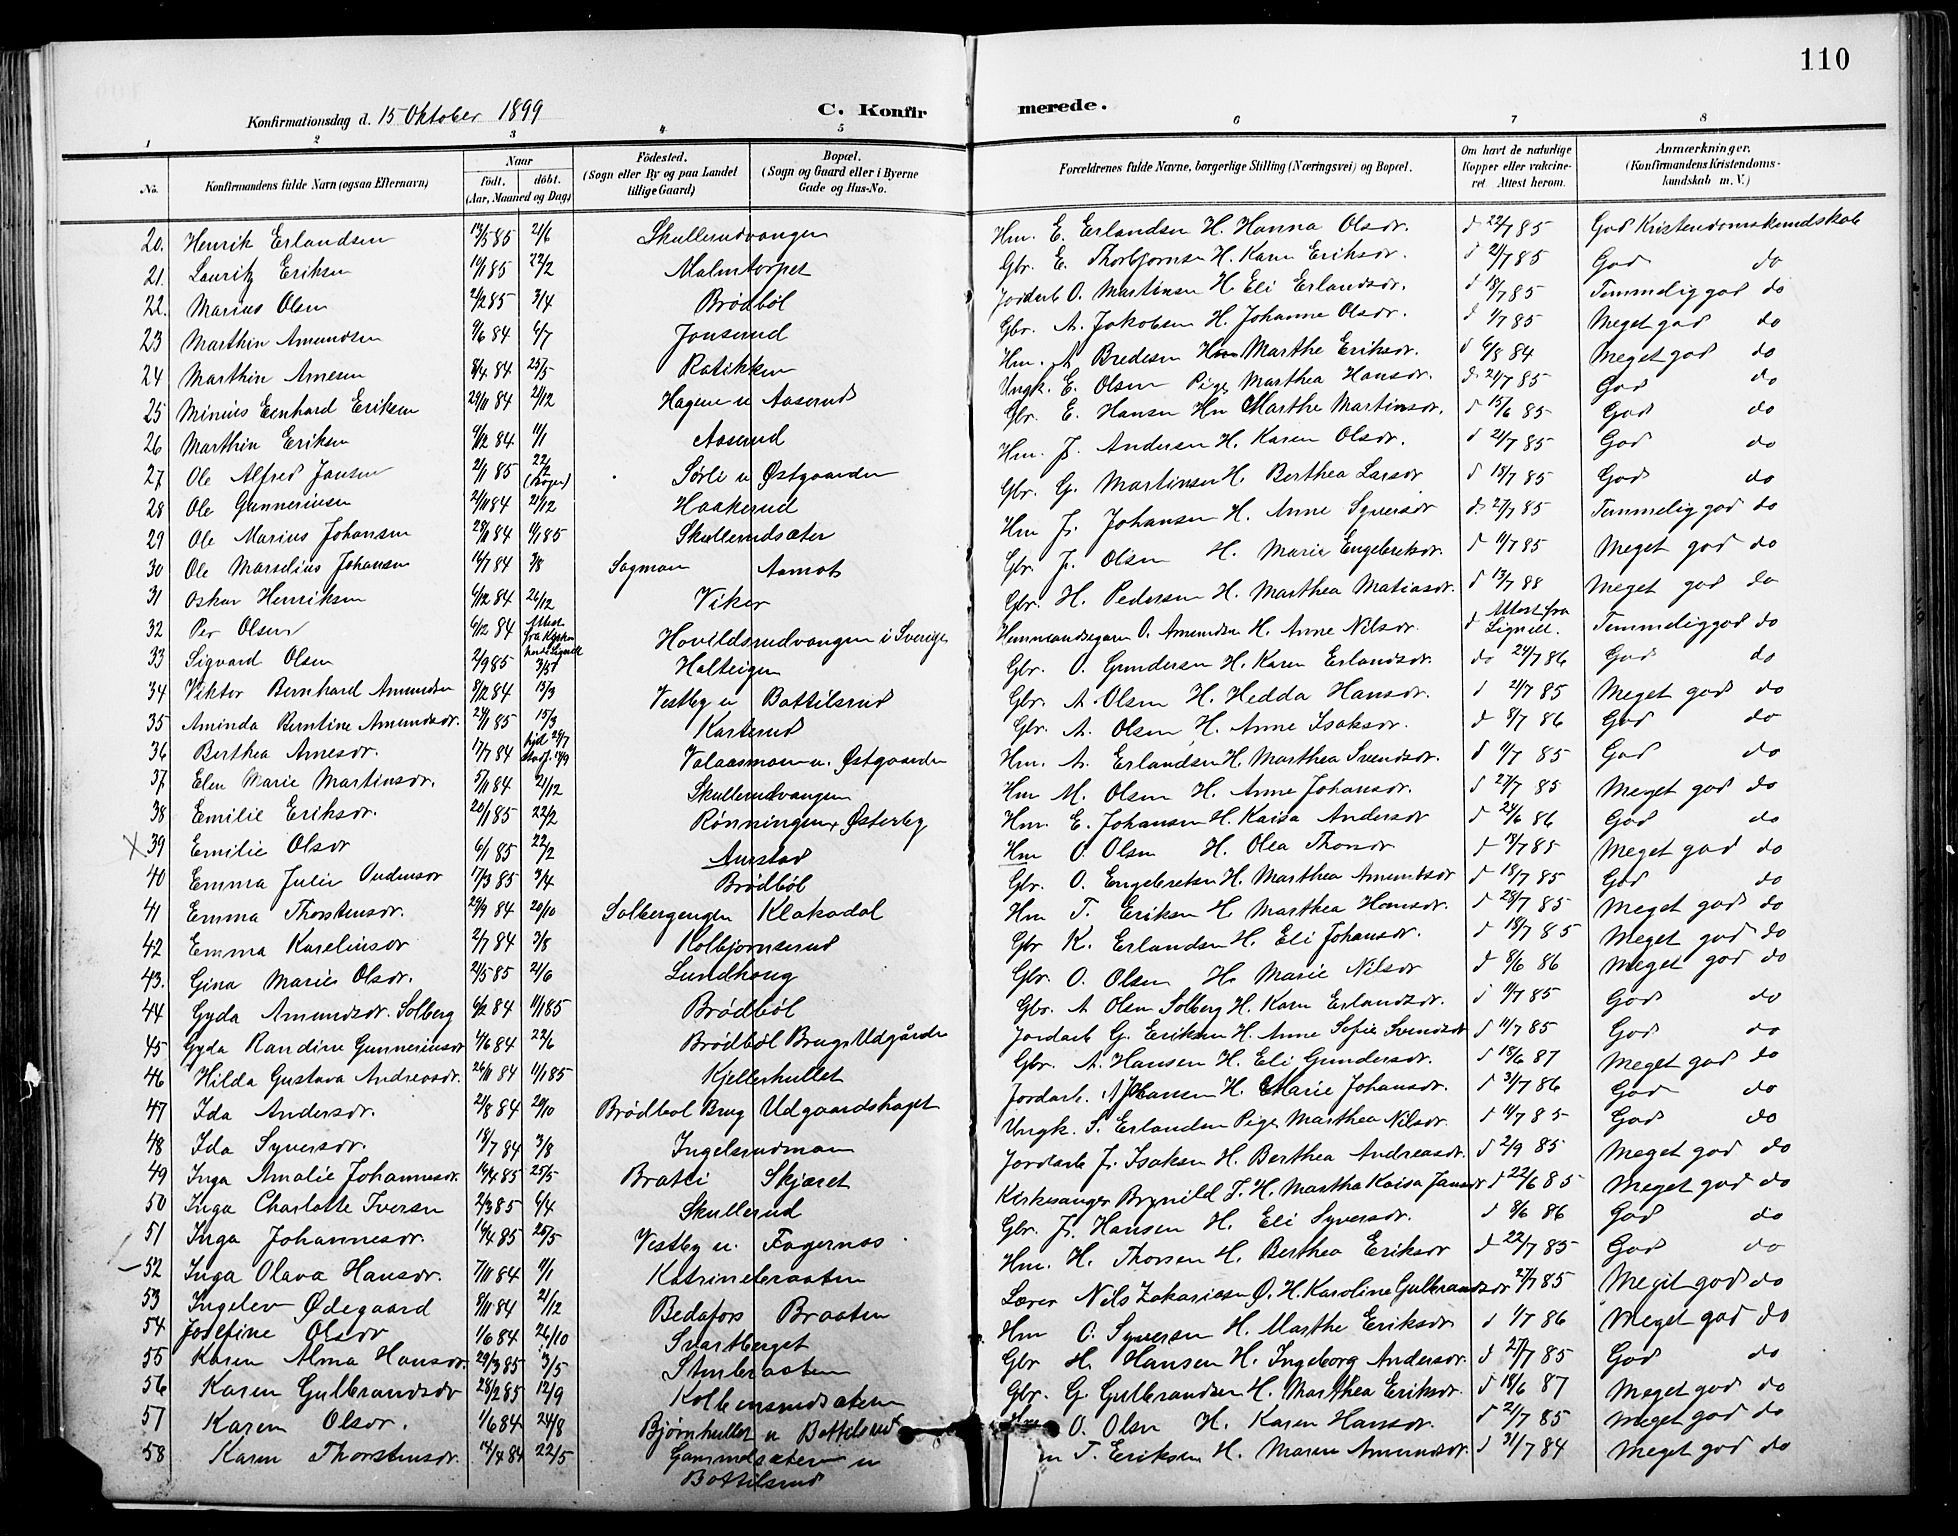 110
Konfirmationsdag d. 15 Oktober 1899 C. Konfirmerede.
1 2 3 4 5 6 7 8
No. Konfirmandens fulde Navn (ogsaa Efternavn) Naar födt. döbt. (Aar, Maaned og Dag) Födested. (Sogn eller By og paa Landet tillige Gaard) Bopæl. (Sogn og Gaard eller i Byerne Gade og Hus-No. Forældrenes fulde Navne, borgerlige Stilling (Næringsvei) og Bopæl. Om havt de naturlige Kopper eller vakcineret Attest herom. Anmærkninger. (Konfirmandens Kristendomskundskab m. V.)
20. Henrik Erlandsen 13/5 85 21/6 Skullerudvangen Hm. E. Erlandsen H. Hanna Olsdr. d 22/7 85 God Kristendomskundskab
21. Lauritz Eriksen 10/1 85 22/2 Malmtorpet Gbr. E. Thorbjørnsen H. Karen Eriksdr. d 21/7 85 God do
22. Marius Olsen 2/2 85 3/4 Brødbøl Jordarb O. Martinsen H Eli Erlandsdr. d 18/7 85 Temmelig god do
23 Marthin Amundsen 9/6 84 6/7 Jonserud Gbr. A. Jakobsen H. Johanne Olsdr. d 1/7 85 Meget god do
24 Marthin Arnesen 8/4 84 25/5 Ratikken Hm. A Bredesen H Marthe Eriksdr. d 6/8 84 Meget god do
25 Minius Ernhard Eriksen 29/11 84 21/12 Hagen u Aaserud Ungk. E. Olsen Pige Marthea Hansdr. d. 21/7 85 God do
26 Marthin Eriksen 9/12 84 11/1 Aaserud Gbr. E. Hansen Hu Marthe Martinsdr. d 15/6 85 God do
27 Ole Alfred Jansen 2/1 85 22/2 Sørli u Østgaarden Hm. J. Andersen H. Karen Olsdr. d 21/7 85 God do
28 Ole Gunneriusen 21/11 84 21/12 Haakerud Gbr. G. Martinsen H. Berthea Larsdr d 18/7 85 God do
29 Ole Marius Johansen 28/11 84 1/1 85 Skullerudsæter Hm J. Johansen H. Anne Syversdr d. 27/7 85 Temmelig god do
30 Ole Marselius Johansen 16/7 84 3/8 Sagmoen Aamot Gbr. J. Olsen H. Marie Engebretsdr. d 11/7 85 Meget god do
31 Oskar Henriksen 6/12 84 26/12 Viker Gbr. H. Pedersen H. Marthea Matiasdr. d 13/7 88 Meget god do
32 Per Olsen 6/2 84 Attest fra Hovildsrudvangen i Sverige Hemmandsegaren O. Amundsen H. Anne Nilsdr. d Attest fra Lignell. Temmelig god do
33 Sigvard Olsen 2/9 85 3/5 Halteigen Gbr. O. Gundersen H. Karen Erlandsdr. do 24/7 86 God do
34 Viktor Bernhard Amundsen 8/12 84 15/3 Vestby u Bottilsrud Gbr. A. Olsen H. Hedda Hansdr. d 21/7 85 Meget god do
35 Aminda Berntine Amundsdr. 24/1 85 15/3 Karterud Gbr. A. Olsen H. Anne Isaksdr. d 8/7 86 God do
36 Berthea Arnesdr. 17/7 84 Valaasmoen u. Østgaarden Hm. A. Erlandsen H. Marthea Svendsdr. d 1/7 85 God do
37. Elen Marie Martinsdr. 5/11 84 21/12 Skullerudvangen Hm M. Olsen H. Anne Johansdr. d 27/7 85 Meget god do
38 Emilie Eriksdr. 20/1 85 22/2 Rønningen, Østerby Hm. E. Johansen H. Kaisa Andersdr d 24/6 86 God do
39 Emilie Olsdr 6/1 85 22/2 Aurstad Hm O. Olsen H. Olea Thorsdr d 13/7 85 Meget god do
40 Emma Julie Oudensdr 17/3 85 3/4 Brødbøl Gbr. O. Engebretsen H. Marthea Amundsdr d 18/7 85 God do
41 Emma Thorstensdr. 29/9 84 20/10 Solbergengen Klokodal Hm T. Eriksen H. Marthea Hansdr. d 28/7 85 Meget god do
42 Emma Karelinsdr 2/7 84 3/8 Kolbjørnserud Gbr K. Erlandsen H. Eli Johansdr. d 18/7 85 Meget god do
43. Gina Marie Olsdr. 2/5 85 2/6 Lundhaug Gbr. O. Olsen H. Marie Nilsdr d 8/6 86 Meget god do
44 Gyda Amundsdr. Solberg 6/12 84 11/1 85 Brødbøl Gbr. A Olsen Solberg H. Karen Erlandsdr. d 11/7 85 God do
45 Gyda Randine Gunneriusdr 1/6 84 22/6 Brødbøl Brugs Udgården Jordarb G. Eriksen H. Anne Sofie Svendsdr d 11/7 85 God do
46 Hilda Gustava Andreasdr. 26/11 84 11/1 85 Kjellerhullet Gbr. A. Hansen H. Eli Gundersdr. d 18/6 87 Meget god do
47 Ida Andersdr. 21/8 84 20/10 Brødbøl Brug Udgaardshaget Jordarb. A Johansen H. Marie Johansdr. d 31/7 86 God do
48 Ida Syversdr. 18/7 84 3/8 Ingelsrudmoen Ungk. S. Erlandsen Pige Marthea Nilsdr. d 11/7 85 God do
49 Inga Amalie Johannesdr. 16/4 85 25/5 Bratli Skjæret Jordarb J. Isaksen H. Berthea Andreasdr. d 2/9 85 Meget god do
50 Inga Charlotte Iversen 2/3 85 6/4 Skullerud Kirkesanger Brynild I. H. Martha Kaisa Jansdr d 22/6 85 Meget god do
51 Inga Johannesdr. 16/4 85 20/5 Vestby u. Fagernæs Gbr. J. Hansen H. Eli Syversdr. d 8/6 86 God do
52 Inga Olava Hansdr. 7/11 84 11/1 Katrinebraaten Hm. H. Thorsen H. Berthea Eriksdr d 22/7 85 God do
53 Ingelev Ødegaard 8/11 84 21/12 Bedafors Braaten Lærer Nils Zakariasen Ø. H. Karoline Gulbrandsdr 27/7 85 Meget god do
54 Josefine Olsdr 1/6 84 26/10 Svartberget Hm O. Syversen H. Marthe Eriksdr d 1/7 86 Meget god do
55 Karen Alma Hansdr. 29/3 85 3/5 Stubraaten Gbr H. Hansen H. Ingeborg Andersdr. d 27/7 85 God do
56 Karen Gulbrandsdr 28/2 85 12/9 Kolbensrudsæteren Gbr. G. Gulbrandsen H. Marthea Eriksdr d 18/6 87 Meget god do
57 Karen Olsdr. 1/6 84 24/8 Bjørnhullet u Bottilsrud O. Olsen H. Karen Hansdr. d 21/7 85 Meget god do
58 Karen Thorstensdr. 14/4 84 22/5 Gammelsæteren u Bottilsrud T. Eriksen H. Maren Amundsdr. d 31/7 84 Meget god do